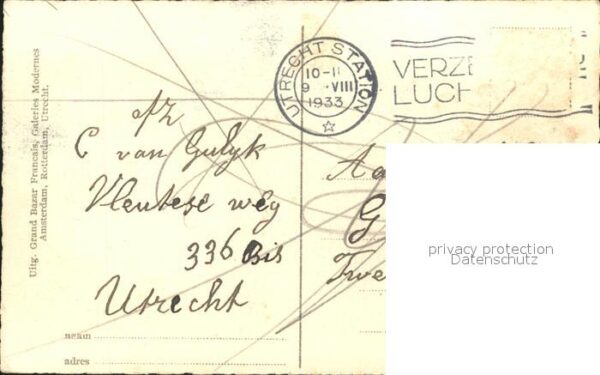 Uitg. Grand Bazar Francais, Galeries Modernes
Amsterdam, Rotterdam, Utrecht.
UTRECHT STATION
10-11
9 VIII
1933
VERZE
LUCH
afz
C van Gulyk
Vleutese weg
336 Bis
Utrecht
naam
adres
Aa
G
Twe
privacy protection
Datenschutz